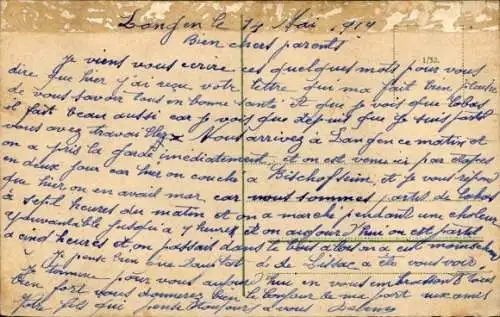 Langen le 14 Mai 1914
Bien chers parents
1/50.
Je viens vous ecrire ces quelques mots pour vous
dire que hier j'ai reçu votre lettre qui ma fait bien plaisir
de vous savoir tous en bonne santé. Et que je vois que labas
il fait beau aussi car je vois que depuis que je suis parti
vous avez travaillez Nous arrivez à Langen ce matin et
on a pris la garde imédiatement, et on est venu ici par étapes
en deux jour car hier on couche a Bischofsheim, et je vous repond
que hier on en avait mar car nous sommes partis de
à sept heures du matin et on a marché pendant une chaleur
épouvantable jusqu'a 7 heures et on aujourd'hui on est partis
a cinq heures et on passait dans le bois alors on a été moins
Je pense bien que de Lissac a été vous voir,
Je termine pour vous aujourd'hui en vous embrassant tous
bien fort vous donnerez bien le bonjour de ma part aux amis
votre fils qui pense toujours a vous